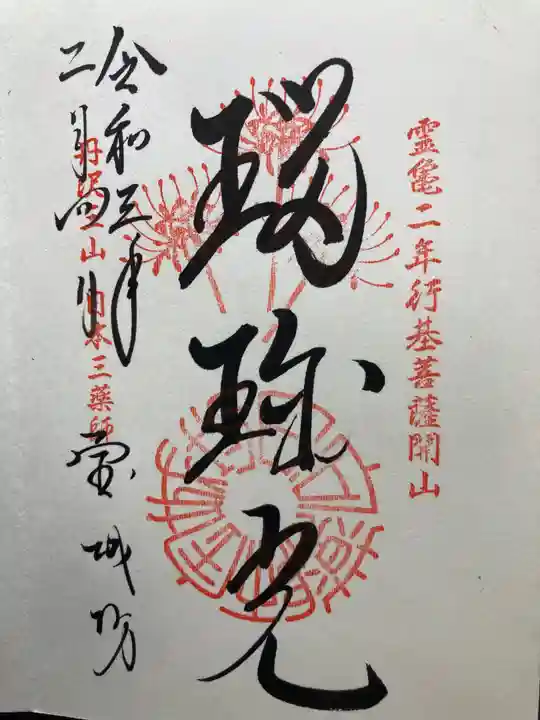 霊亀二年行基菩薩開山
瑠璃光
令和三年
二月四日
山 日本三薬師
宝城坊